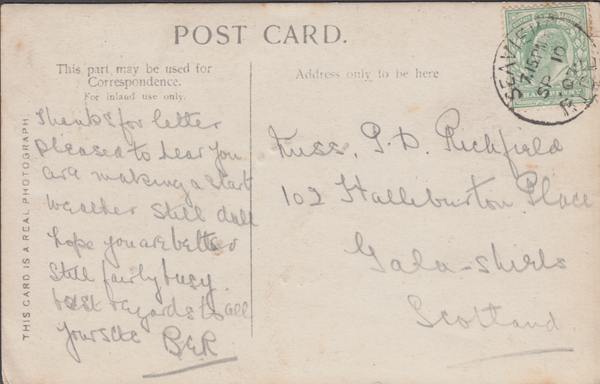 POST CARD.
This part may be used for
Correspondence.
For inland use only.
Address only to be here
THIS CARD IS A REAL PHOTOGRAPH
Thanks for letter
pleased to hear you
are making a start
weather still dull
hope you are better
still fairly busy.
best regards to all
yours etc
BER
Miss. P. D. Richfield
102 Halliburton Place
Gala-shiels
Scotland
SEAVIEW
7.15PM
SP 10
07